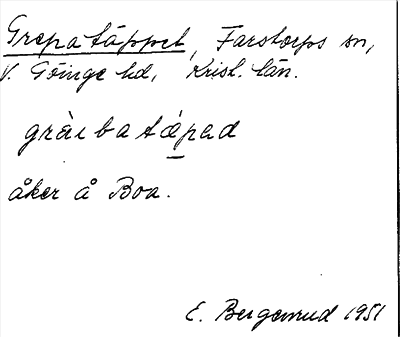 Grepatäppet, Farstorps sn,
V. Göinge hd, Krist. län.
gràibatæpad
åker å Boa.
E. Bergsrud 1951